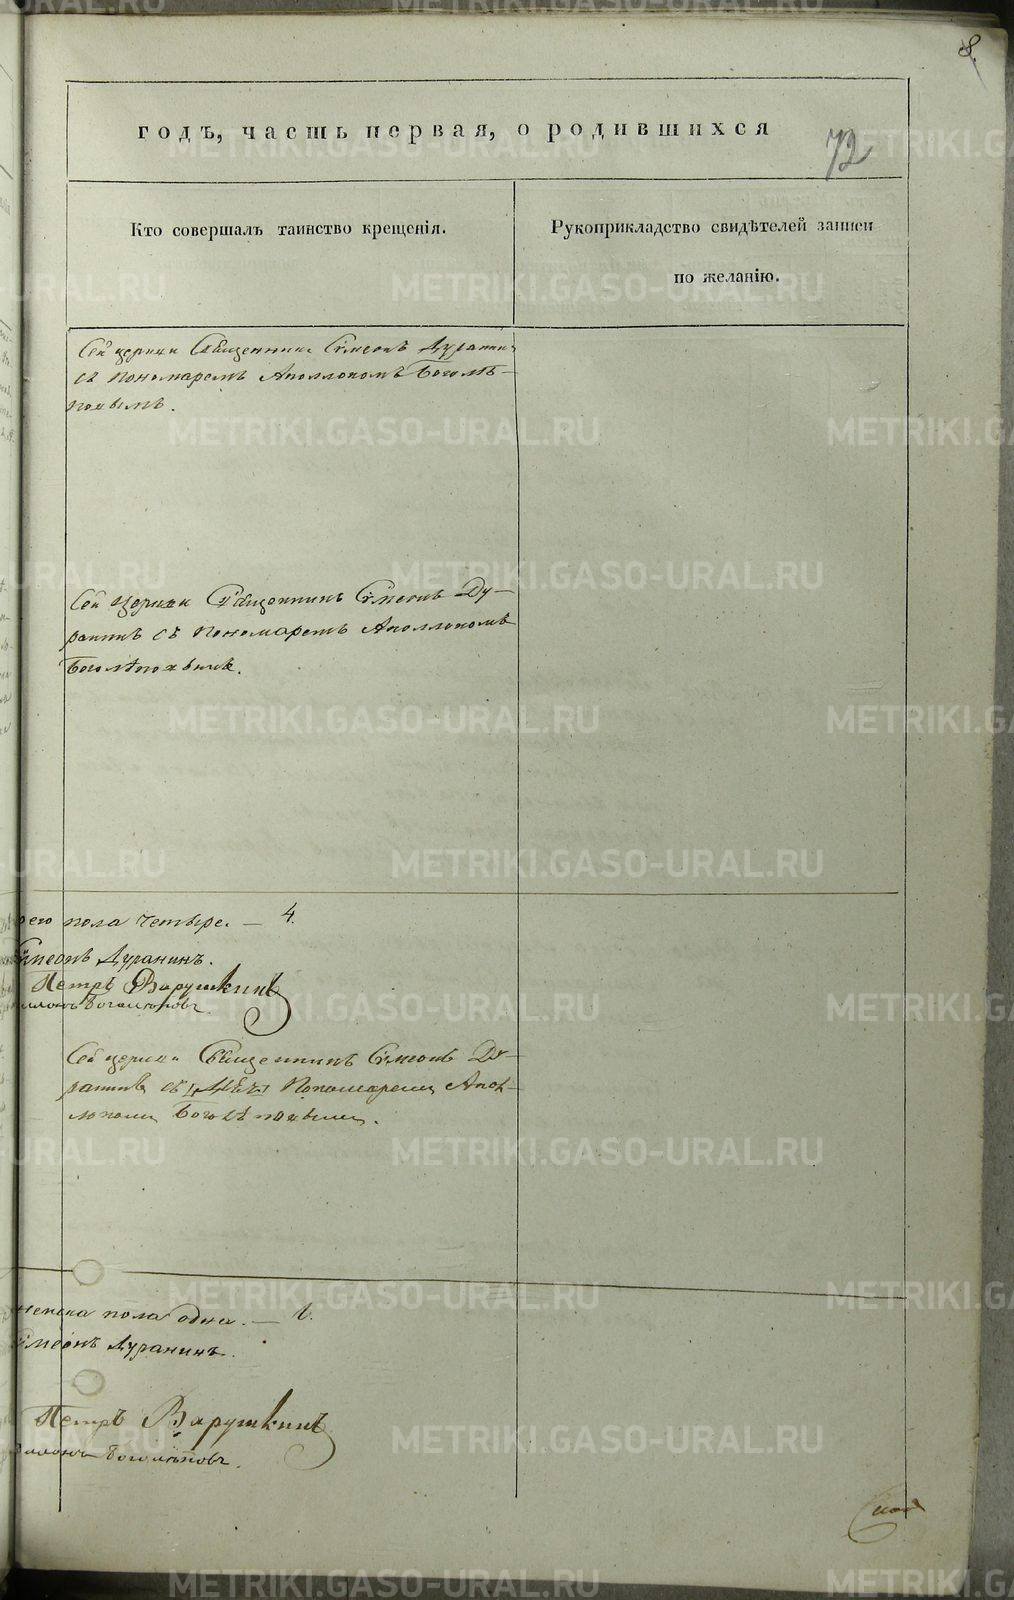 8.
годъ, часть первая, о родившихся
72
Кто совершалъ таинство крещенія.
Рукоприкладство свидѣтелей записи
по желанію.
Сей церкви Священникъ Сѵмеонъ Дуранинъ
съ Пономаремъ Аполлономъ Боголѣ-
повымъ.
Сей церкви Священникъ Сѵмеонъ Ду-
ранинъ съ Пономаремъ Аполлономъ
Боголѣповымъ.
пола четыре. — 4.
Сѵмеонъ Дуранинъ.
Петръ Варушкинъ
Боголѣповъ.
Сей церкви Священникъ Сѵмеонъ Ду-
ранинъ съ Пономаремъ Апол-
лономъ Боголѣповымъ.
женска пола одна. — 1.
Сѵмеонъ Дуранинъ.
Петръ Варушкинъ
Боголѣповъ.
METRIKI.GASO-URAL.RU